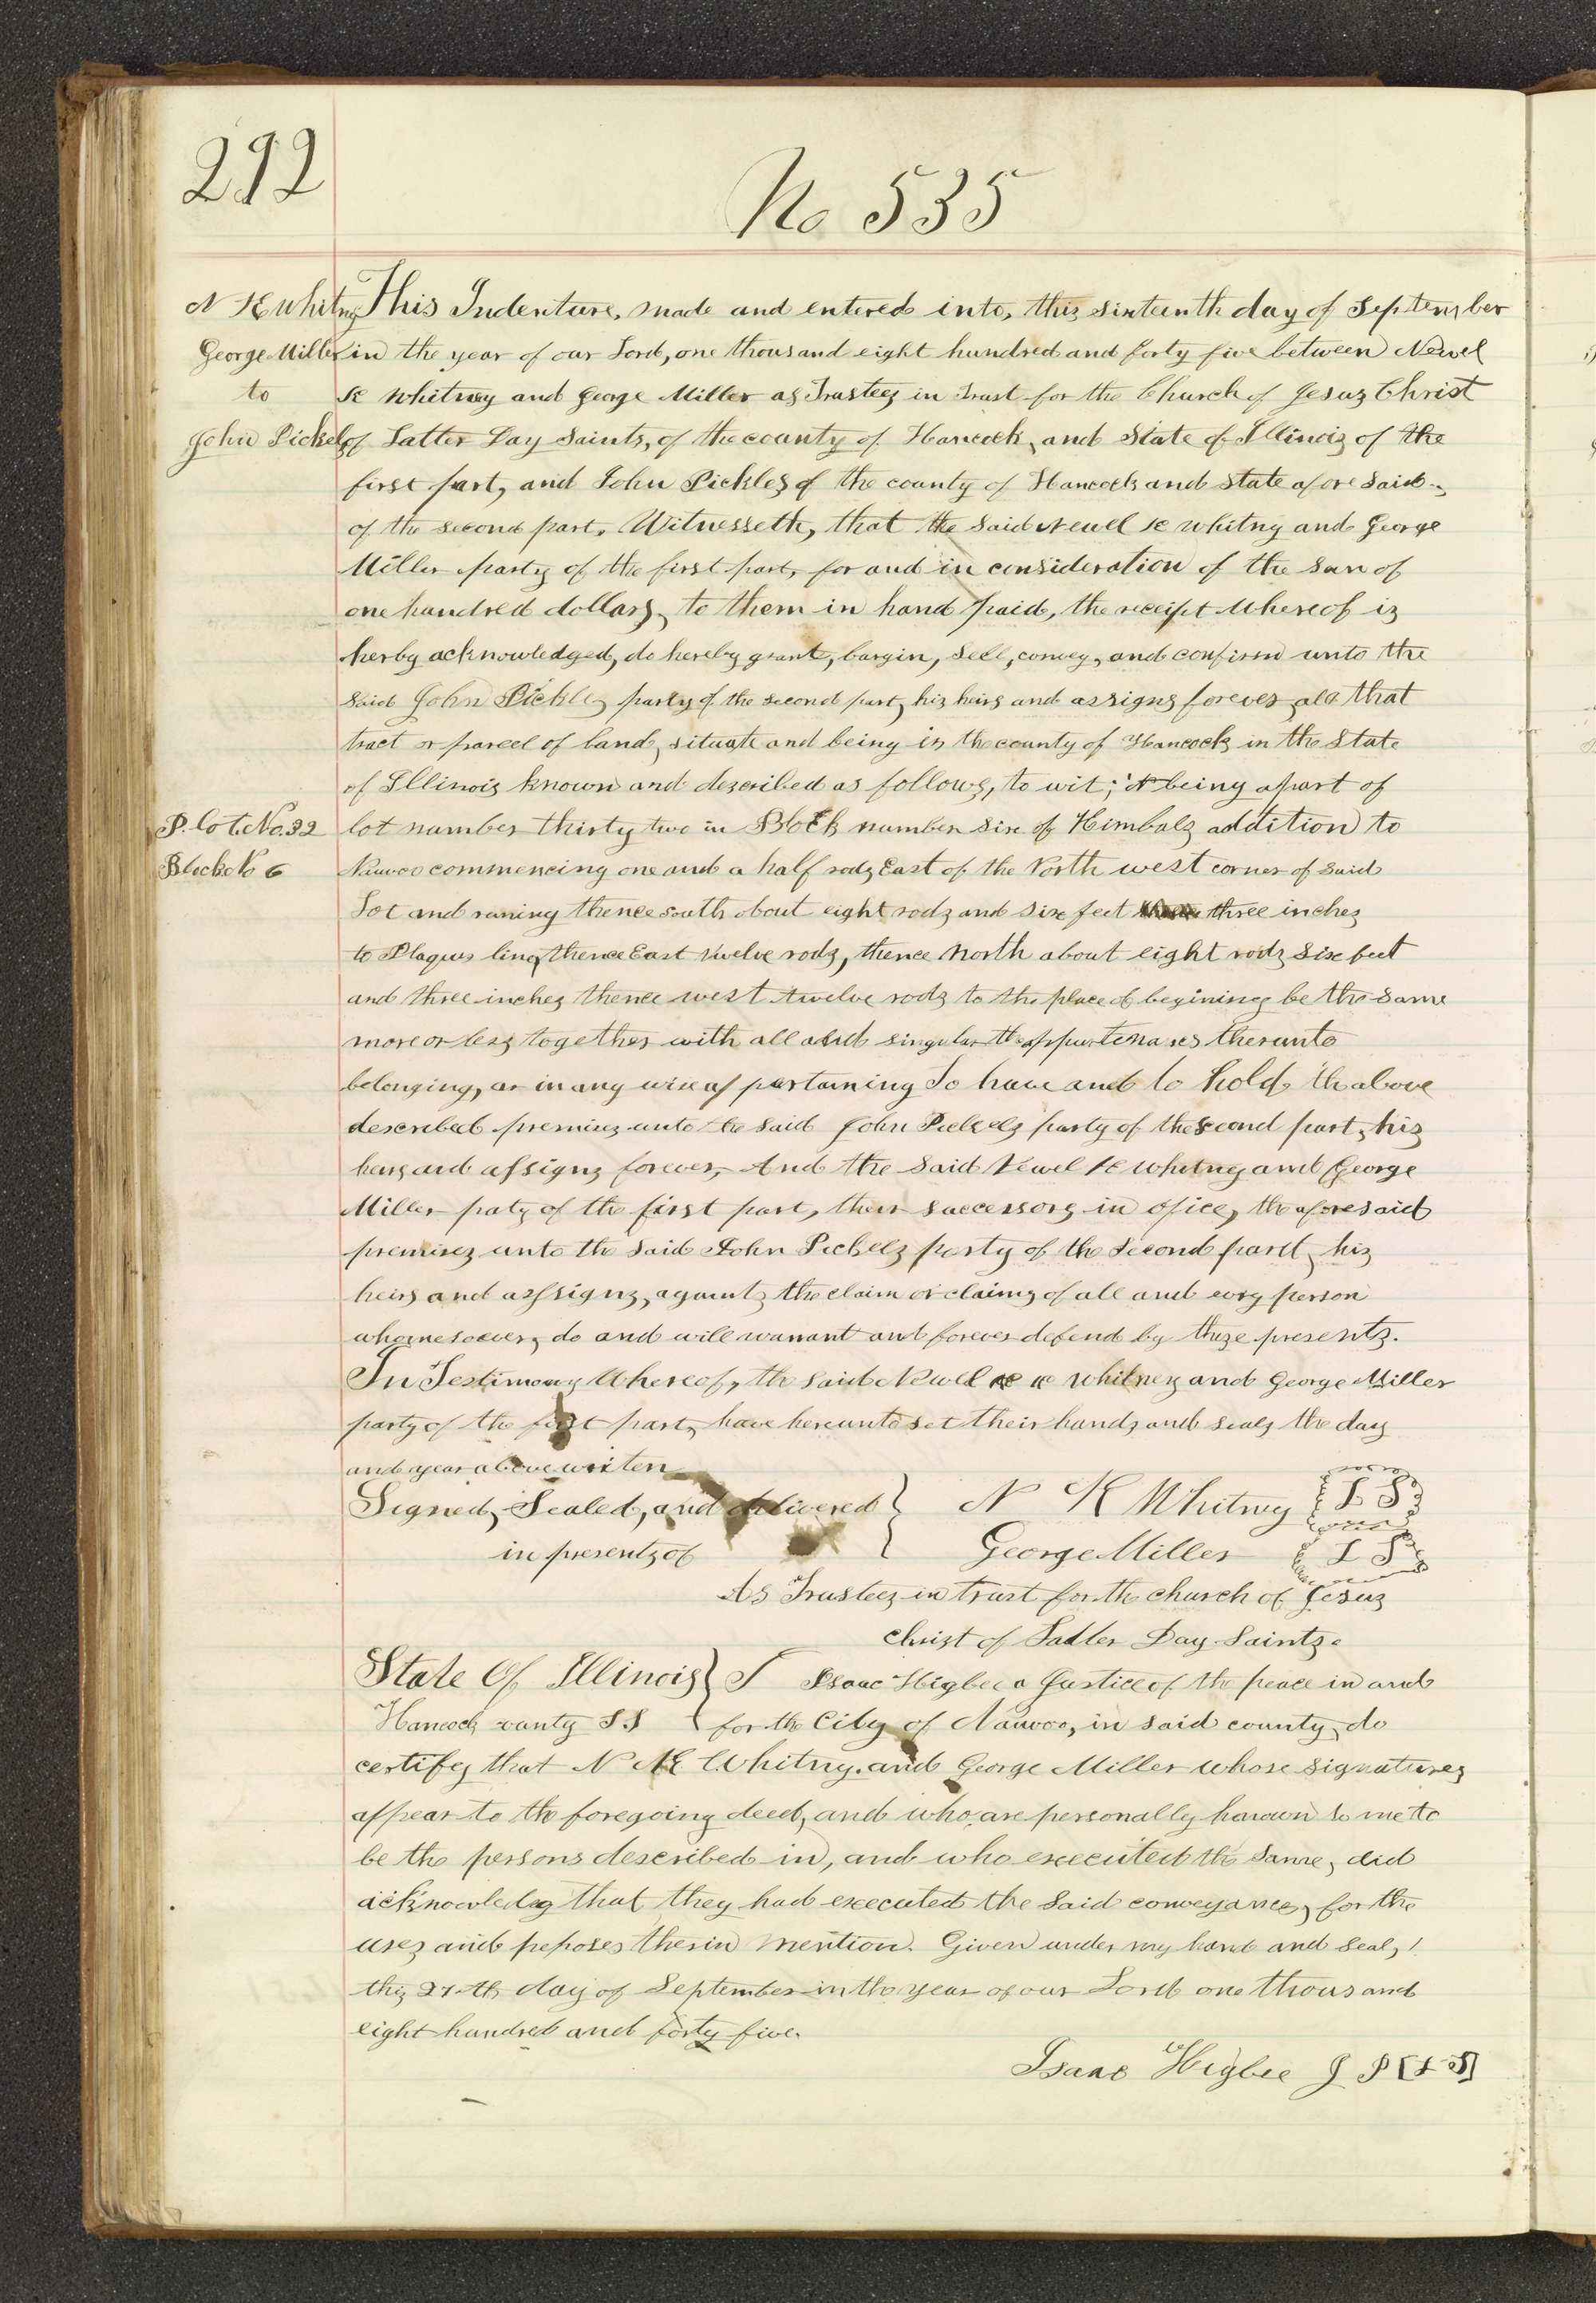 292
No 535
N K Whitny
George Miller
to
John Pickels
This Indenture, made and entered into, this sixteenth day of September
in the year of our Lord, one thousand eight hundred and forty five between Newel
K Whitney and George Miller as Trustees in Trust for the Church of Jesus Christ
of Latter Day Saints, of the county of Hancock, and State of Illinois of the
first part, and John Pickles of the county of Hancock and state afore said
of the second part. Witnesseth, that the said Newel K whitny and George
Miller party of the first part, for and in consideration of the sum of
one hundred dollars, to them in hand paid, the receipt whereof is
herby acknowledged, do hereby grant, bargin, sell, convey, and confirm unto the
said John Pickles party of the second part, his heirs and assigns forever, all that
tract or parcel of land, situate and being in the county of Hancock in the State
of Illinois known and described as follows, to wit; it being a part of
P. Lot. No. 32
Block No 6
lot number thirty two in Block number six of Kimbals addition to
Nauvoo commencing one and a half rods East of the North west corner of said
Lot and runing thence south about eight rods and six feet three inches
to Plaques line, thence East twelve rods, thence North about eight rods six feet
and three inches thence west twelve rods to the place of begining be the same
more or less together with all and singular the appurtenances therunto
belonging, or in any wise appertaining To have and to hold the above
described premises unto the said John Pickels party of the second part, his
heirs and assigns forever, And the said Newel K whitney and George
Miller paty of the first part, their successors in ofice, the aforesaid
premises unto the said John Pickels party of the second part, his
heirs and assigns, against the claim or claims of all and evry person
whomesoever, do and will warrant and forever defend by these presents.
In Testimony Whereof, the said Newel K Whitney and George Miller
party of the first part, have hereunto set their hands and seals the day
and year above writen
Signed, Sealed, and delivered } N K Whitney {L S}
in presents of } George Miller {L S}
As Trustees in trust for the church of Jesus
Christ of Latter Day Saints.
State Of Illinois } I Isaac Higbee a Justice of the peace in and
Hancock county S.S { for the City of Nauvoo, in said county, do
certify that N K Whitny. and George Miller whose signatures
appear to the foregoing deed, and who, are personally known to me to
be the persons described in, and who executed the same, did
acknowledg that they had executed the said conveyance, for the
uses and peposes therin mention. Given under my hand and seal,
this 27th day of September in the year of our Lord one thousand
eight hundred and forty five.
Isaac Higbee J P [L S]